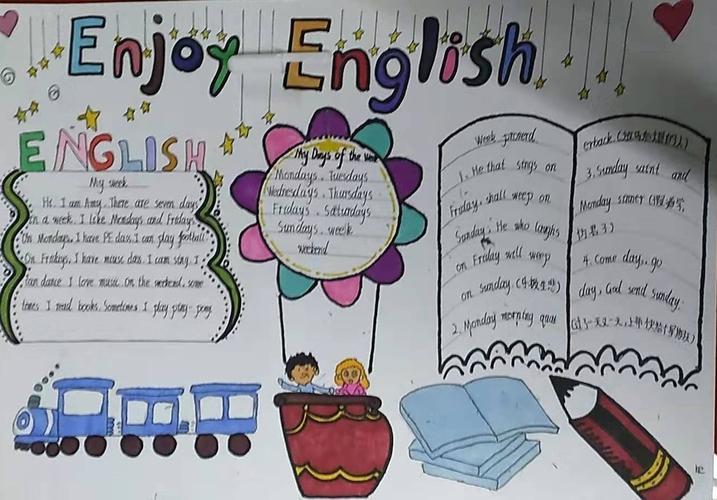 Enjoy English
ENGLISH
My week
Hi. I am Amy. There are seven days
in a week. I like Mondays and Fridays.
On Mondays, I have PE class. I can play football.
On Fridays, I have music class. I can sing. I
can dance. I love music. On the weekend, some
times I read books. Sometimes I play ping-pong.
My Days of the week
Mondays. Tuesdays
Wednesdays. Thursdays
Fridays. Saturdays
Sundays. week
weekend
Week proverd
1. He that sings on
Friday, shall weep on
Sunday. He who laughs
on Friday will weep
on sunday. (乐极生悲)
2. Monday morning quar
erback.
3. Sunday saint and
Monday sinner
伪君子)
4. Come day, go
day, God send sunday.